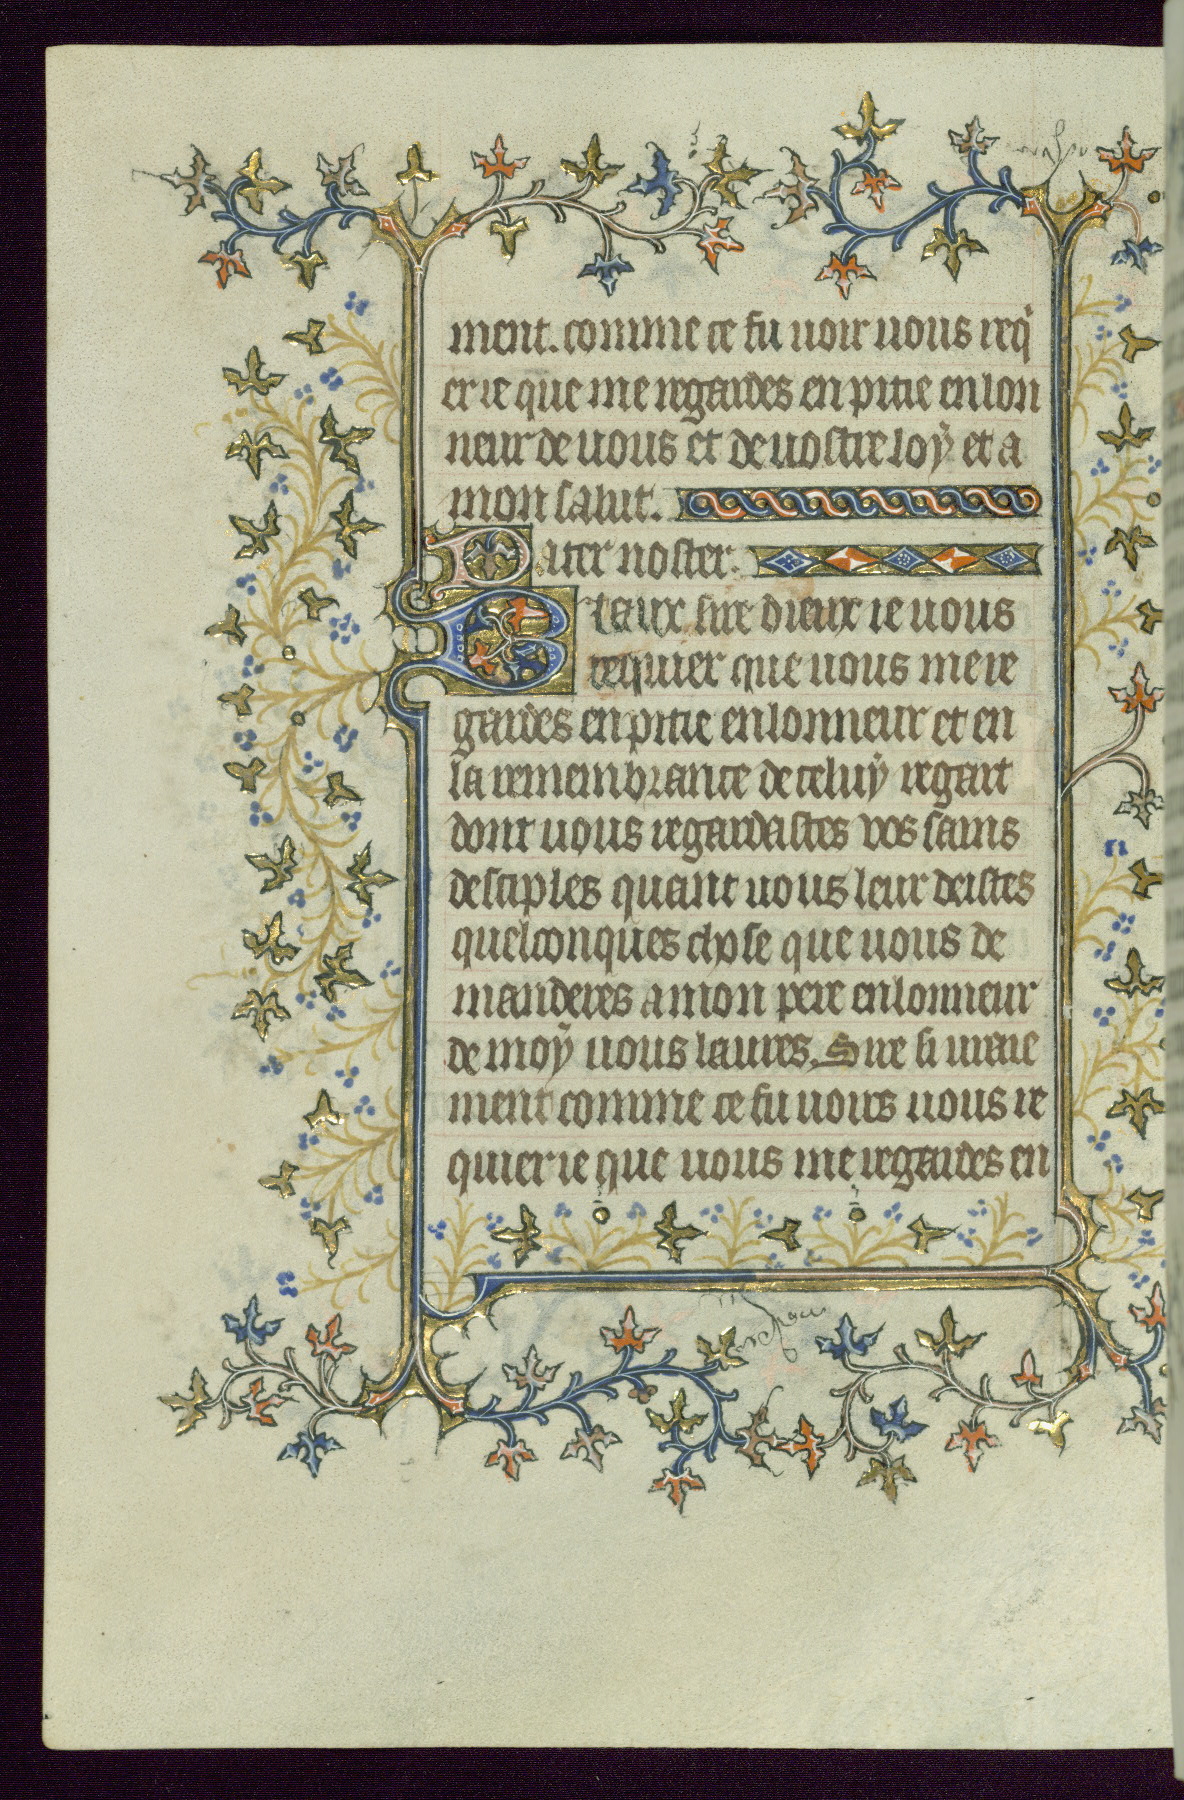 ment. comme ce fu uoir uous req̃
er ie que me regardes en pitie en lon
neur de uous et de uostre loÿ et a
mon salut.
Pater noster.
Biaux sire dieux ie uous
requier que uous me re
gardes en pitie en lonneur et en
la remembrance de celuÿ regart
dont uous regardastes vos sains
desciples quant uous leur deistes
quelconques chose que uous de
manderes a mon pere en lonneur
de moÿ uous laures. Sire si uraie
ment comme ce fu uoirs uous re
quier ie que uous me regardes en